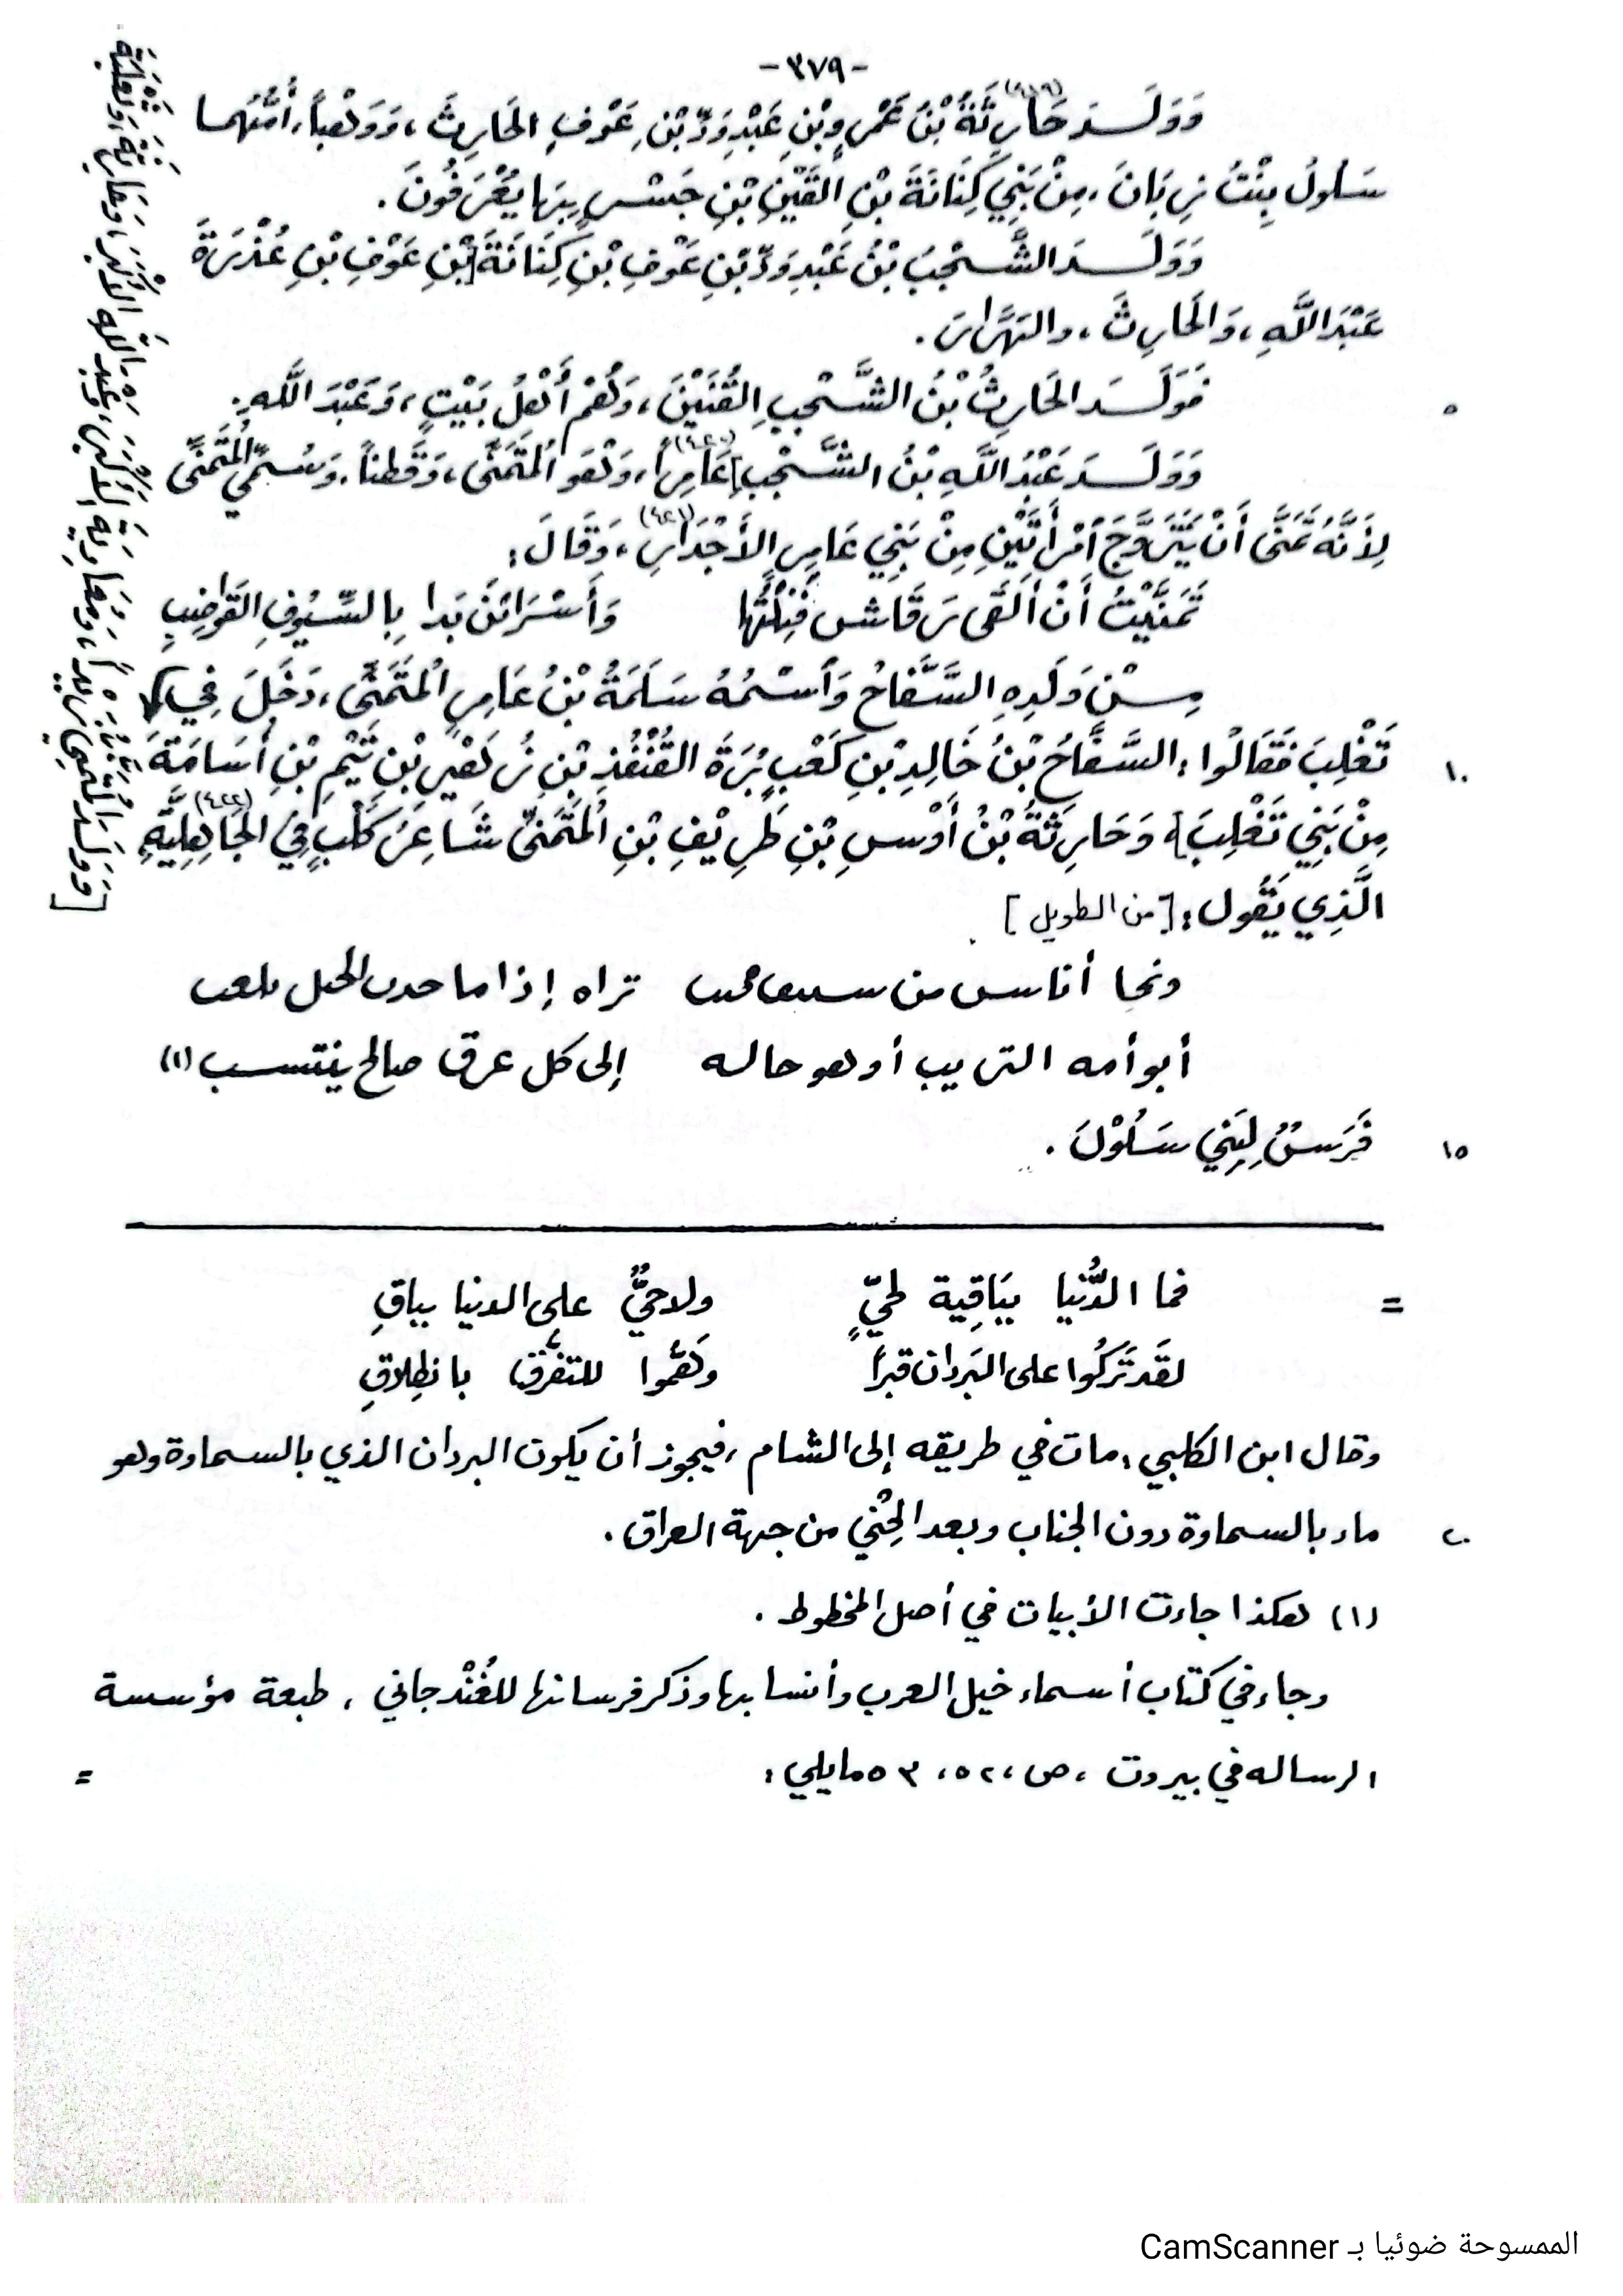 -٣٧٩-
وَوَلَدَ حَارِثَةُ (٤١٩) بْنُ عَمْرِو بْنِ عَبْدِ وَدِّ بْنِ عَوْفٍ الحَارِثَ، وَوَهْباً، أُمُّهُما
سَلولُ بِنْتُ زِبَانَ، مِنْ بَنِي كِنَانَةَ بْنِ القَيْنِ بْنِ جَسْرٍ بِهَا يُعْرَفُونَ.
وَوَلَدَ الشَّجْبُ بْنُ عَبْدِ وَدِّ بْنِ عَوْفِ بْنِ كِنَانَةَ بْنِ عَوْفِ بْنِ عُذْرَةَ
عَبْدَ اللَّهِ، وَالحَارِثَ، والهَرَّاسَ.
٥ فَوَلَدَ الحَارِثُ بْنُ الشَّجْبِ القُنَيْنَ، وَهُمْ أَهْلُ بَيْتٍ، وَعَبْدَ اللَّهِ.
وَوَلَدَ عَبْدُ اللَّهِ بْنُ الشَّجْبِ] عَامِراً (٤٢٠)، وَهُوَ المُتَمَنَّى، وَقَطناً. وَسُمِّيَ المُتَمَنِّي
لِأَنَّهُ تَمَنَّى أَنْ يَتَزَوَّجَ امْرَأَتَيْنِ مِنْ بَنِي عَامِرِ الأَجْدَارِ (٤٢١)، وَقَالَ:
تَمَنَّيْتُ أَنْ أَلقَى رَقَاشِ فَنِلْتُها وَأَسْرَائِنَ بَدا بِالسِّيُوفِ القَوَاضِبِ
مِنْ وَلَدِهِ السَّفَّاحُ وَاسْمُهُ سَلَمَةُ بْنُ عَامِرٍ المُتَمَنِّي، دَخَلَ فِي
١٠ تَغْلِبَ فَقَالُوا: السَّفَّاحُ بْنُ خَالِدِ بْنِ كَعْبِ بُرَةَ القُنْفُذِ بْنِ زُهَيْرِ بْنِ تَيْمِ بْنِ أُسَامَةَ
مِنْ بَنِي تَغْلِبَ] وَحَارِثَةُ بْنُ أَوْسِ بْنِ طَرِيْفِ بْنِ المُتَمَنِّي شَاعِرُ كَلْبٍ فِي الجَاهِلِيَّةِ (٤٢٢)
الَّذِي يَقُول: [من الطويل]
ونجا أناس من تراه إذا ما
أبو أمه التريب أو هو حاله إلى كل عرق صالح ينتسب (١)
١٥ فَرَسٌ لِبَنِي سَلُوْلَ.
= فما الدُّنيا بِبَاقِية لحيٍّ ولا حيٌّ على الدنيا بباقِ
لقَد تَرَكُوا على البَردان قبراً وهَمُّوا للتفرُّق بانطِلاقِ
وقال ابن الكلبي: مات في طريقه إلى الشام، فيجوز أن يكون البردان الذي بالسماوة وهو
٢٠ ماء بالسماوة دون الجناب وبعد الحِنْي من جهة العراق.
(١) هكذا جاءت الأبيات في أصل المخطوط.
وجاء في كتاب أسماء خيل العرب وأنسابها وذكر فرسانها للغُنْدجاني، طبعة مؤسسة
الرساله في بيروت، ص ٥٢، ٥٣ مايلي: =
الممسوحة ضوئيا بـ CamScanner